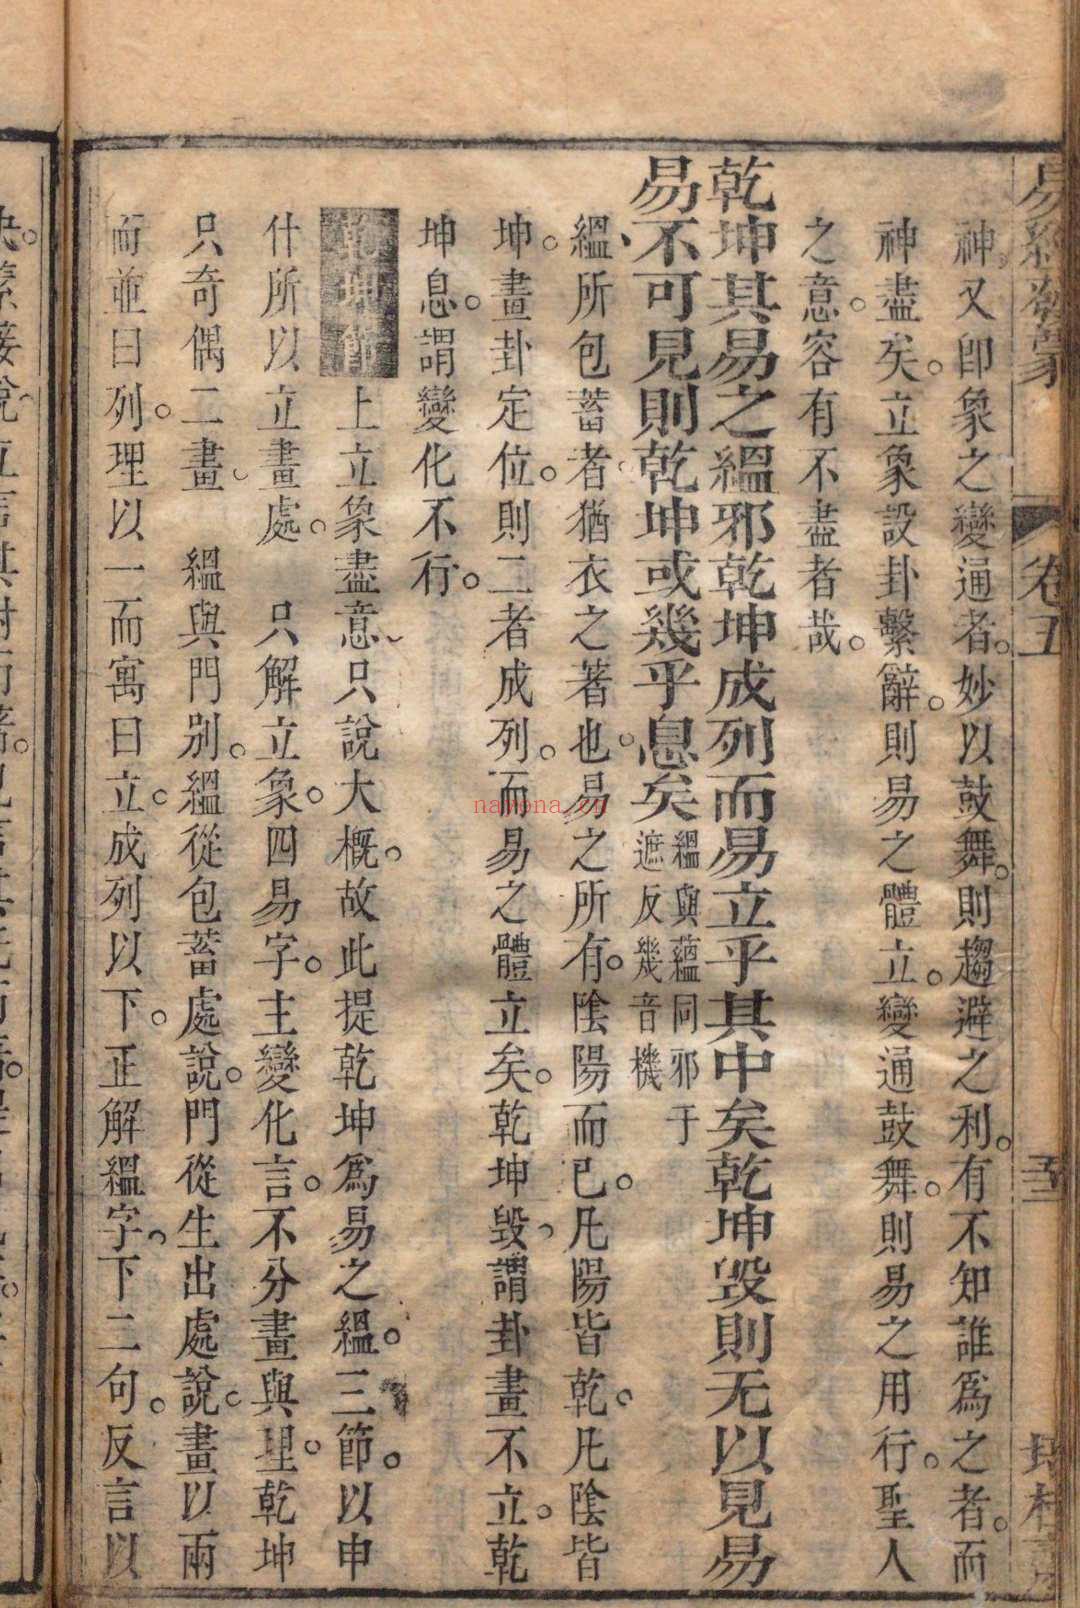 卷五
神又卽象之變通者。妙以鼓舞。則趨避之利。有不知誰爲之者。而
神盡矣。立象設卦繫辭。則易之體立。變通鼓舞。則易之用行。聖人
之意。容有不盡者哉。
乾坤其易之縕邪乾坤成列而易立乎其中矣乾坤毀則无以見易
易不可見則乾坤或幾乎息矣
縕與蘊同邪于
遮反幾音機
縕所包蓄者猶衣之著也。易之所有。陰陽而已。凡陽皆乾。凡陰皆
坤。畫卦定位。則二者成列。而易之體立矣。乾坤毀。謂卦畫不立。乾
坤息。謂變化不行。
乾坤節
上立象盡意。只說大概。故此提乾坤爲易之縕。三節。以申
什所以立畫處。　只解立象。四易字。主變化言。不分畫與理。乾坤
只奇偶二畫。　縕與門別。縕從包蓄處說。門從生出處說。畫以兩
而並曰列。理以一而寓曰立。成列以下。正解縕字。下二句。反言以
nayona.cn